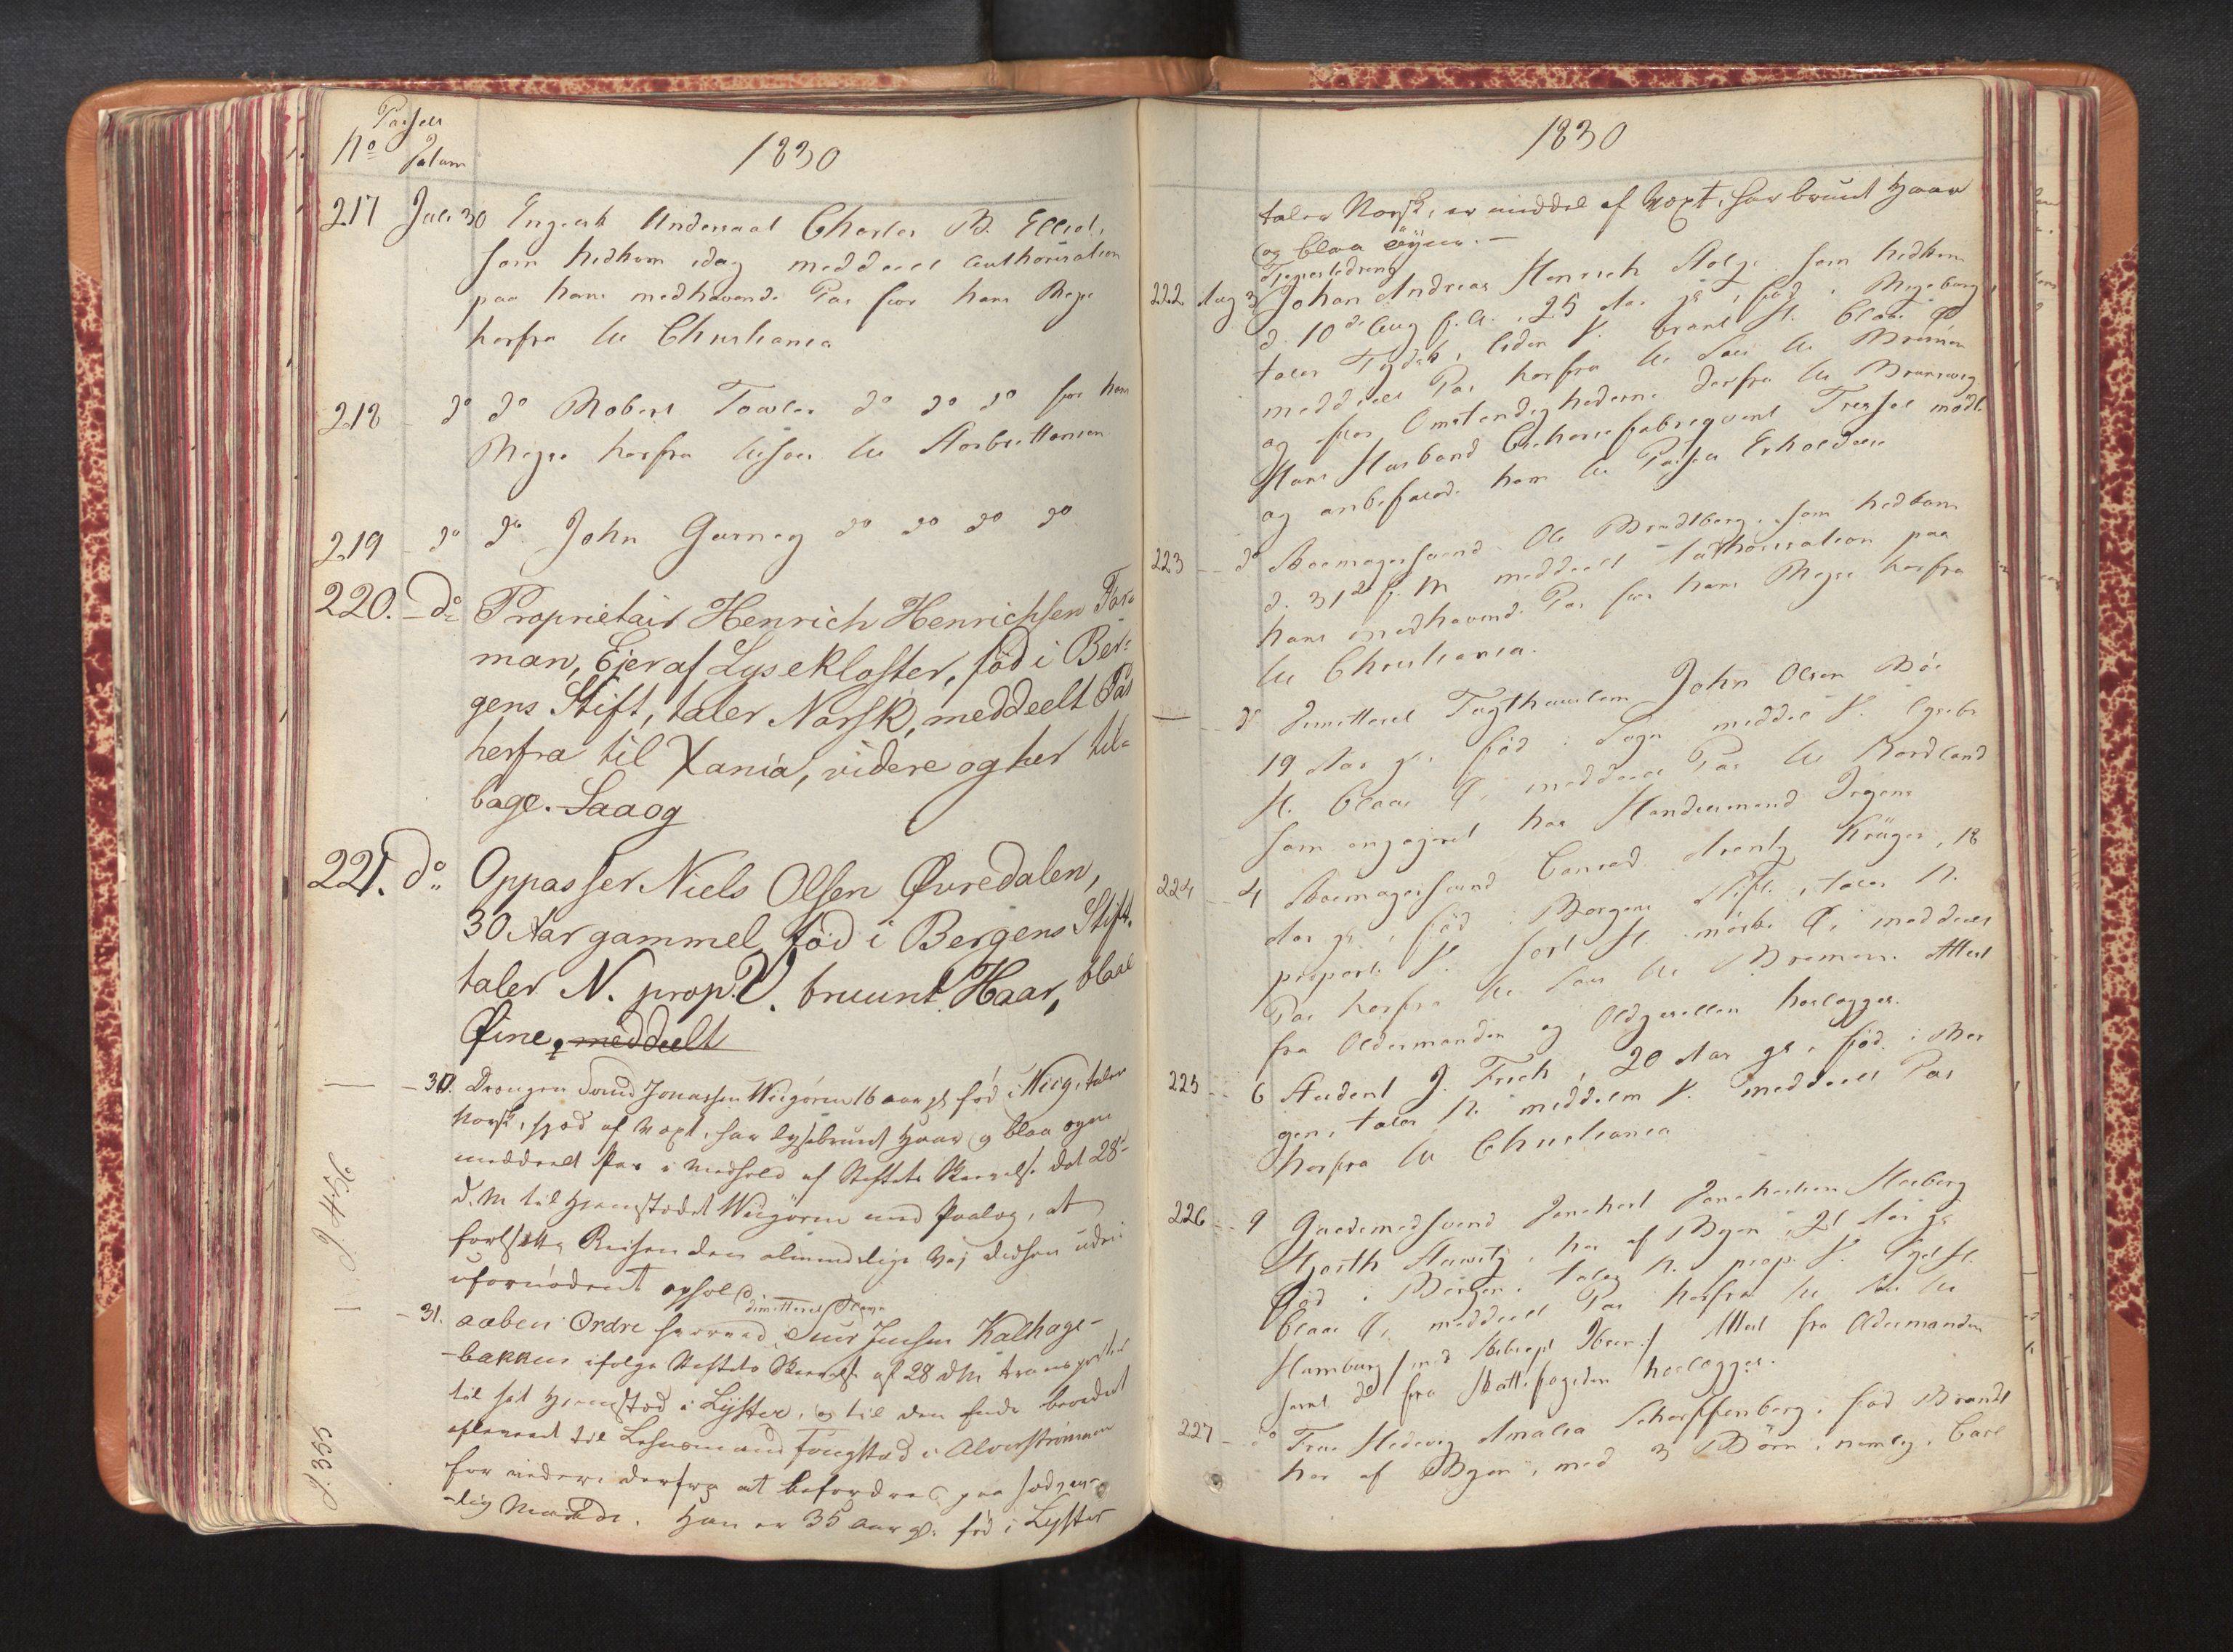 Passets
No Datum
1830
217 Juli 30 Engelsk Undersaat Charles B. Elliot,
som hidkom idag meddeelt Authorisation
paa hans medhavende Pas for hans Reyse
herfra til Christiania
218 - do do Robert Towler do do do for hans
Reyse herfra tilsøes til Storbrittanien
219 - do do John Gurney do do do do
220. - do Proprietair Henrich Henrichsen For=
man, Ejer af Lysekloster, fød i Ber=
gens Stift, taler Norsk, meddeelt Pas
herfra til Xania, videre og her til=
bage. Saaog
221. do Oppasser Niels Olsen Øvredalen,
30 Aar gammel, fød i Bergens Stift.
taler N. prop. V. bruunt Haar, blaae
Øine, meddeelt
- 30. Drengen Jonassen Wiigøren 16 aar gl. fød i Wiig, taler
Norsk, spæd af Væxt, har lysebruunt Haar og blaa øyne
meddeelt Pas i Medhold af Stiftets Skrivelse dat 28de
d. M til Hjemstædet Wiigøren med Paalæg, at
fortsætte Reisen den almindelige Vej didhen uden
ufornødent ophold.
dimitteret Slave
- 31. aaben Ordre hvorved Siur Jensen Kalhage-
-bakken ifølge Stiftets Skrivelse af 28 d M transporteres
til sit Hjemsted i Lyster, og til den Ende bliver
afleveret til Lehnsmand Tongstad i Alverstrømmen
for videre derfra at befordres paa sædvan-
-lig Maade. Han er 35 Aar gl. fød i Lyster
J. 456
J. 355
1830
taler Norsk, er middel af Væxt, har bruunt Haar
og blaa öyne. -
222 Aug 3 Johan Andreas Henrich Stolze som hidkom
d. 10de Aug f. A. 25 Aar gl, fød i
taler Tydsk, liden V. bruunt H. blaae Ø
meddeelt Pas herfra til Søes til Bremen
og efter Omstændighederne derfra til Brunsvig
Hans Huusbond Cichoriefabriqveur Tressel mødte
og anbefalede ham til Passets Erholdelse
223 - do Skoemagersvend Ole Brodtkorg, som hidkom
d. 31de f. M meddeelt Authorisation paa
hans medhavende Pas for hans Reyse herfra
til Christiania.
- do Dimitteret Tugthuuslem John Olsen Bøe
19 Aar gl, fød i Sogn middel V. lysebr
H. blaae Ø, meddeelt Pas til Nordland
som engageret hos Handelsmand Irgens
224 - 4 Skoemagersvend Conrad Arentz Krüger, 18
Aar gl., fød i Bergens Stift, taler N.
proport. V. sort H. mörke Ø, meddeelt
Pas herfra til Søes til Bremen. Attest
fra Oldermanden og Oldgesellen heelægges.
225 - 6 Student J. Frich, 20 Aar gl, fød i Ber
gen, taler N. middelm V. meddeelt Pas
herfra til Christiania
226 - 9 Guldsmedsvend Jonchert Jonchertsen Neuberg
Hjorth Meewitz, her af Byen, 21 Aar gl
fød i Bergen, taler N. prop. V. lyst H.
blaae Ø, meddeelt Pas herfra til Søes til
Hamburg med Attest fra Oldermanden
samt do fra Skattefogeden heelægges.
227 - do Frue Hedevig Amalia Scharffenberg, fød Brandt
her af Byen, med 3 Börn, nemlig, Carl